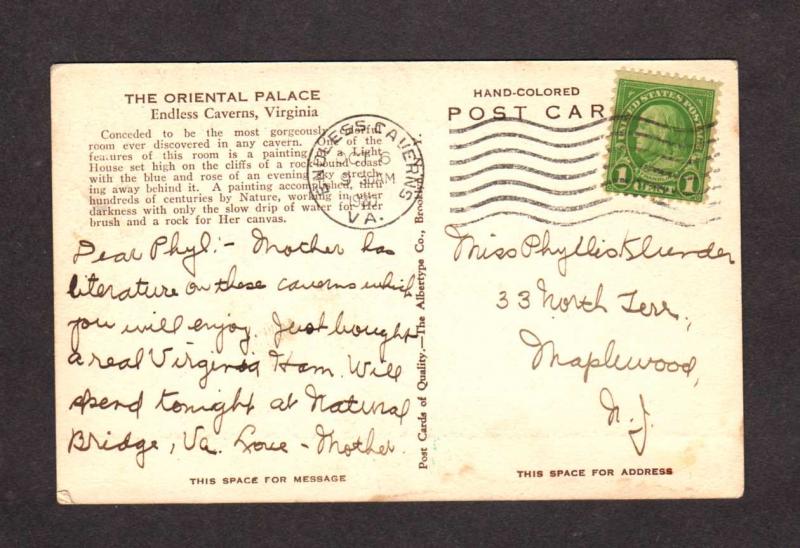 THE ORIENTAL PALACE
Endless Caverns, Virginia
Conceded to be the most gorgeously colorful
room ever discovered in any cavern. One of the
features of this room is a painting of a Light
House set high on the cliffs of a rock bound coast
with the blue and rose of an evening sky stretch-
ing away behind it. A painting accomplished, thru
hundreds of centuries by Nature, working in utter
darkness with only the slow drip of water for Her
brush and a rock for Her canvas.
Dear Phyl:- Mother has
literature on these caverns which
you will enjoy. Just bought
a real Virginia Ham. Will
spend tonight at Natural
Bridge, Va. Love - Mother.
THIS SPACE FOR MESSAGE
Post Cards of Quality.—The Albertype Co., Brooklyn
ENDLESS CAVERNS
6
AM
VA.
HAND-COLORED
POST CAR
UNITED STATES POSTAGE
1 CENT 1
Miss Phyllis Klunder
33 North Terr.,
Maplewood,
N.J.
THIS SPACE FOR ADDRESS